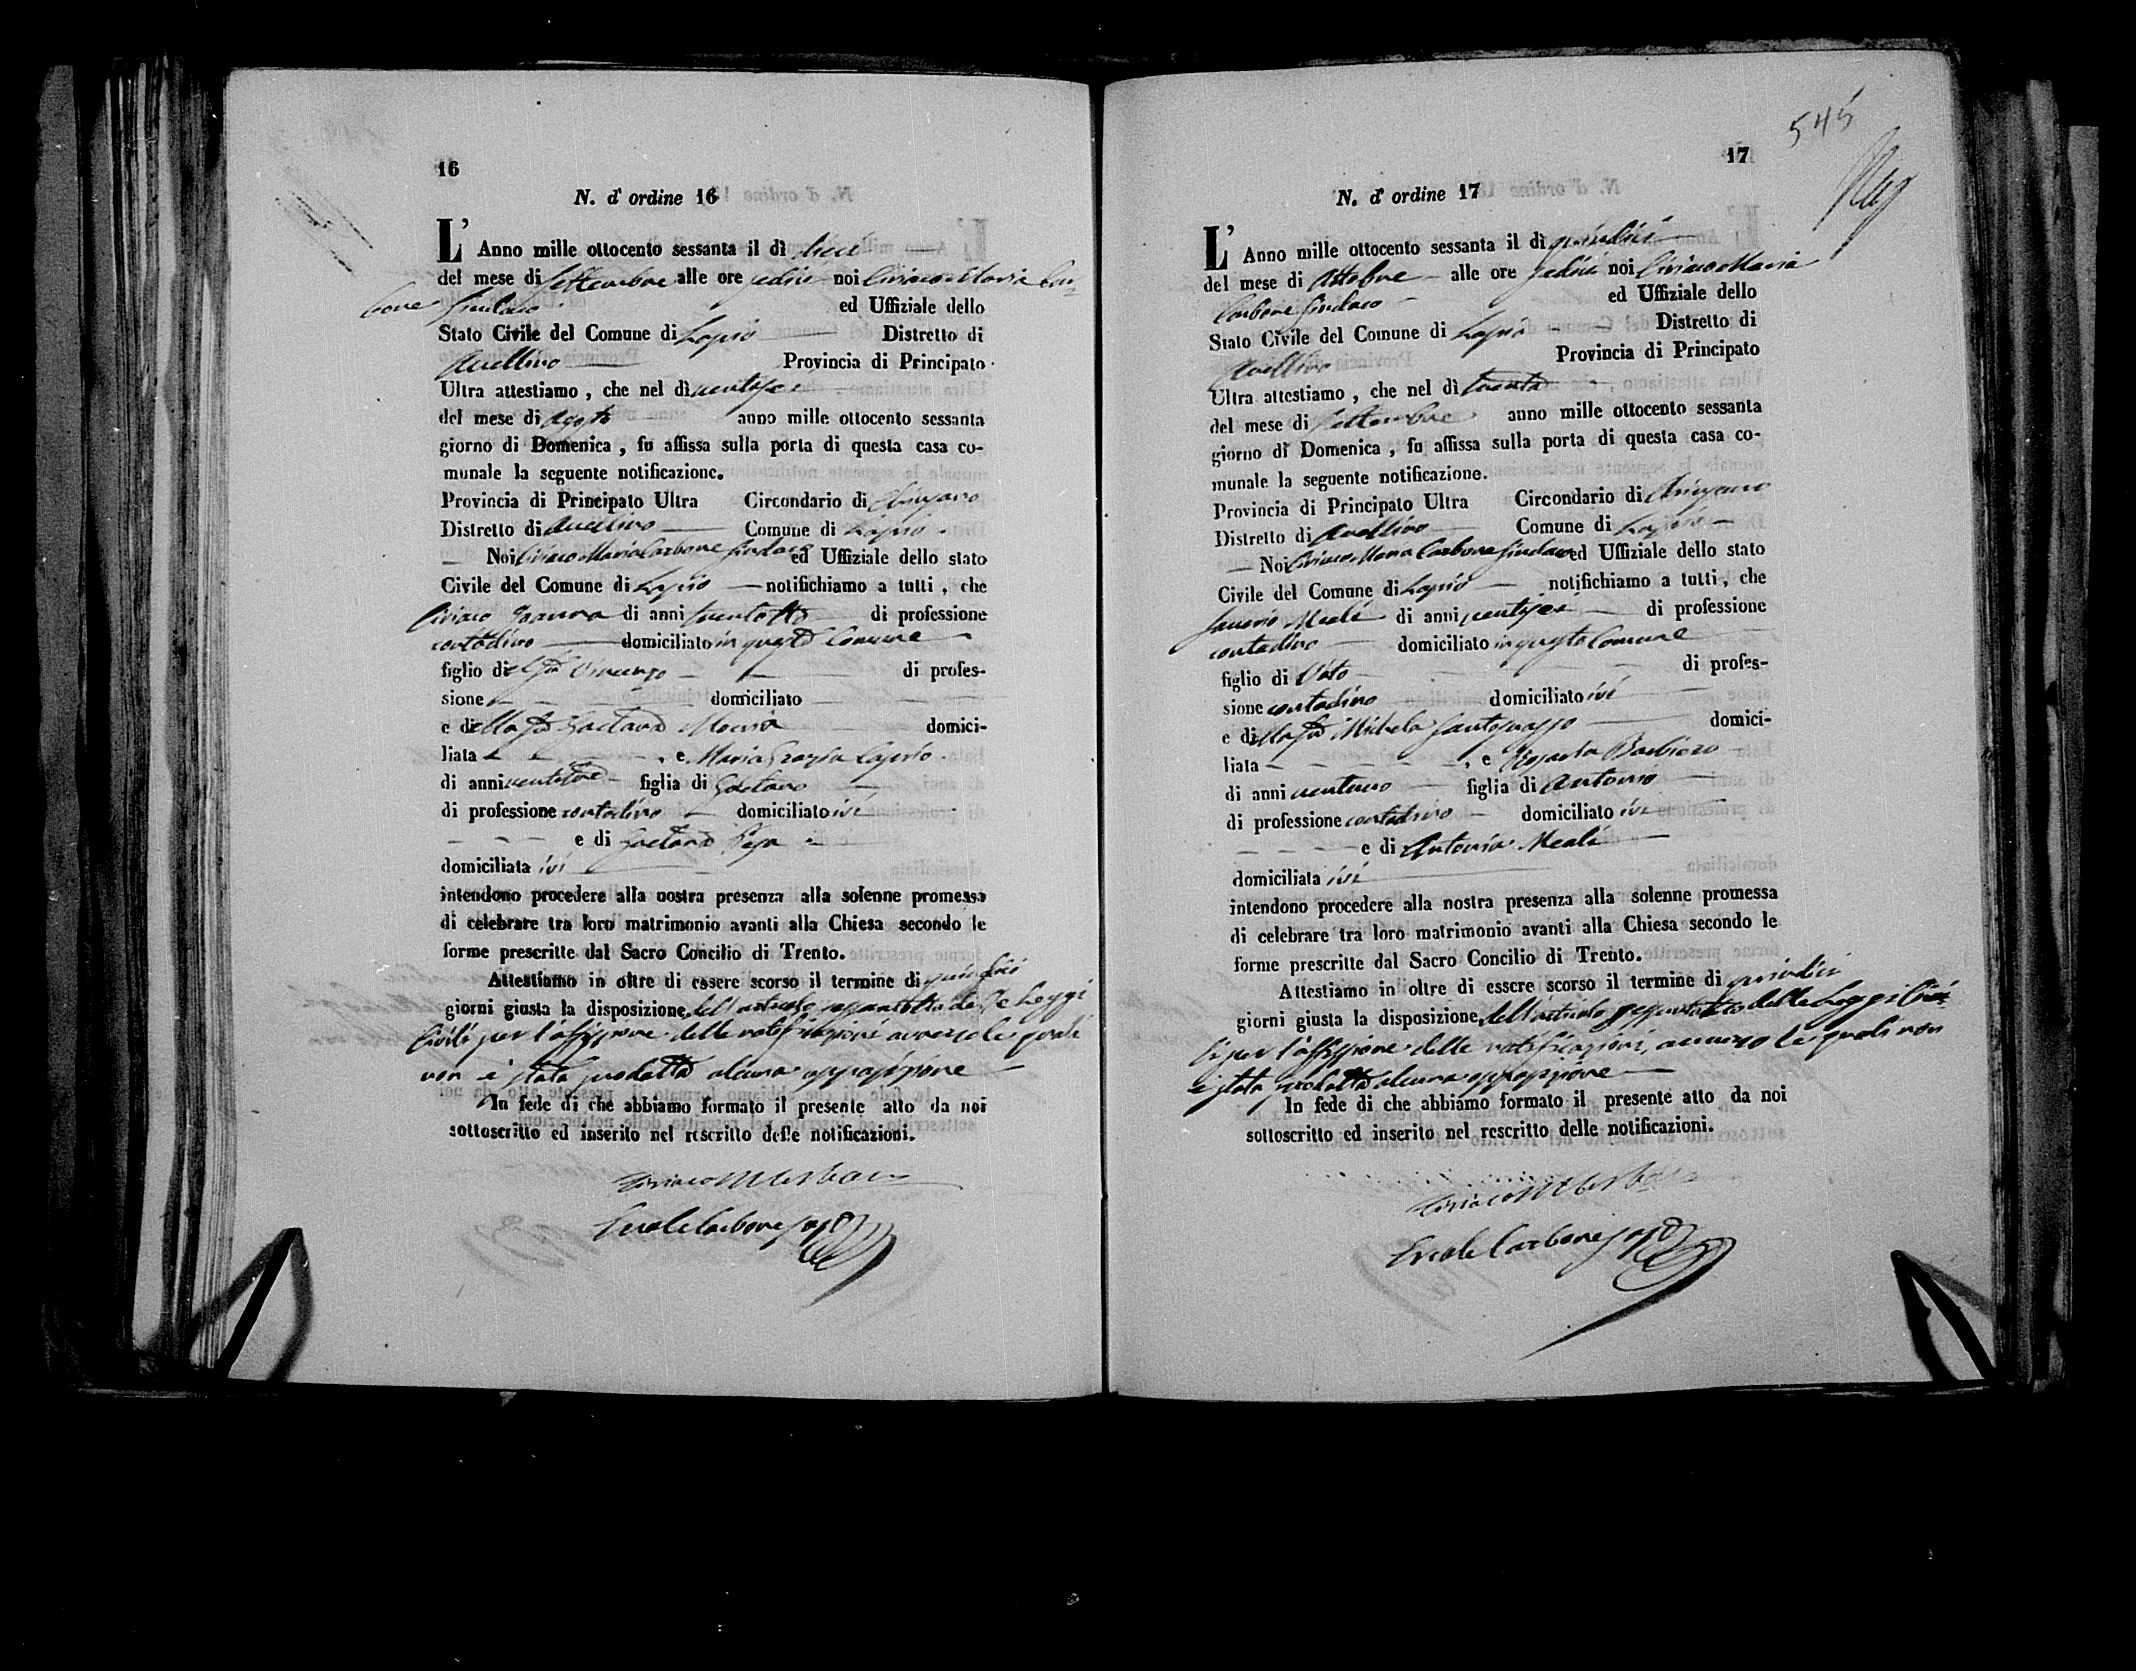 16
N. d' ordine 16
L' Anno mille ottocento sessanta il dì dieci
del mese di Settembre alle ore sedici noi Ciriaco Maria Car=
bone Sindaco ed Uffiziale dello
Stato Civile del Comune di Lapio Distretto di
Avellino Provincia di Principato
Ultra attestiamo, che nel dì ventisei
del mese di Agosto anno mille ottocento sessanta
giorno di Domenica, fu affissa sulla porta di questa casa co-
munale la seguente notificazione.
Provincia di Principato Ultra Circondario di
Distretto di Avellino Comune di Lapio
Noi Ciriaco Maria Carbone Sindaco ed Uffiziale dello stato
Civile del Comune di Lapio notifichiamo a tutti, che
Ciriaco di anni trentotto di professione
contadino domiciliato in questo Comune
figlio del fu Vincenzo di profes-
sione domiciliato
e della fu Gaetana domici-
liata , e Maria Grazia Caprio
di anni figlia di Gaetano
di professione contadino domiciliato ivi
e di Gaetana
domiciliata ivi
intendono procedere alla nostra presenza alla solenne promessa
di celebrare tra loro matrimonio avanti alla Chiesa secondo le
forme prescritte dal Sacro Concilio di Trento.
Attestiamo in oltre di essere scorso il termine di quindici
giorni giusta la disposizione dell'articolo sessantotto delle Leggi
Civili per l'affissione delle notificazioni avverso le quali
non è stata prodotta alcuna opposizione
In fede di che abbiamo formato il presente atto da noi
sottoscritto ed inserito nel rescritto delle notificazioni.
Ciriaco M Carbone
Ercole Carbone
545
17
N. d' ordine 17
L' Anno mille ottocento sessanta il dì quindici
del mese di Ottobre alle ore sedici noi Ciriaco Maria
Carbone Sindaco ed Uffiziale dello
Stato Civile del Comune di Lapio Distretto di
Avellino Provincia di Principato
Ultra attestiamo, che nel dì trenta
del mese di Settembre anno mille ottocento sessanta
giorno di Domenica, fu affissa sulla porta di questa casa co-
munale la seguente notificazione.
Provincia di Principato Ultra Circondario di
Distretto di Avellino Comune di Lapio
Noi Ciriaco Maria Carbone Sindaco ed Uffiziale dello stato
Civile del Comune di Lapio notifichiamo a tutti, che
Saverio Meale di anni ventisei di professione
contadino domiciliato in questo Comune
figlio di Vito di profes-
sione contadino domiciliato ivi
e della fu Michela Santosuosso domici-
liata , e Rosaria Barbiero
di anni ventuno figlia di Antonio
di professione contadino domiciliato ivi
e di Antonia Meale
domiciliata ivi
intendono procedere alla nostra presenza alla solenne promessa
di celebrare tra loro matrimonio avanti alla Chiesa secondo le
forme prescritte dal Sacro Concilio di Trento.
Attestiamo in oltre di essere scorso il termine di quindici
giorni giusta la disposizione dell'articolo sessantotto delle Leggi Civi=
li per l'affissione delle notificazioni, avverso le quali non
è stata prodotta alcuna opposizione
In fede di che abbiamo formato il presente atto da noi
sottoscritto ed inserito nel rescritto delle notificazioni.
Ciriaco M Carbone
Ercole Carbone